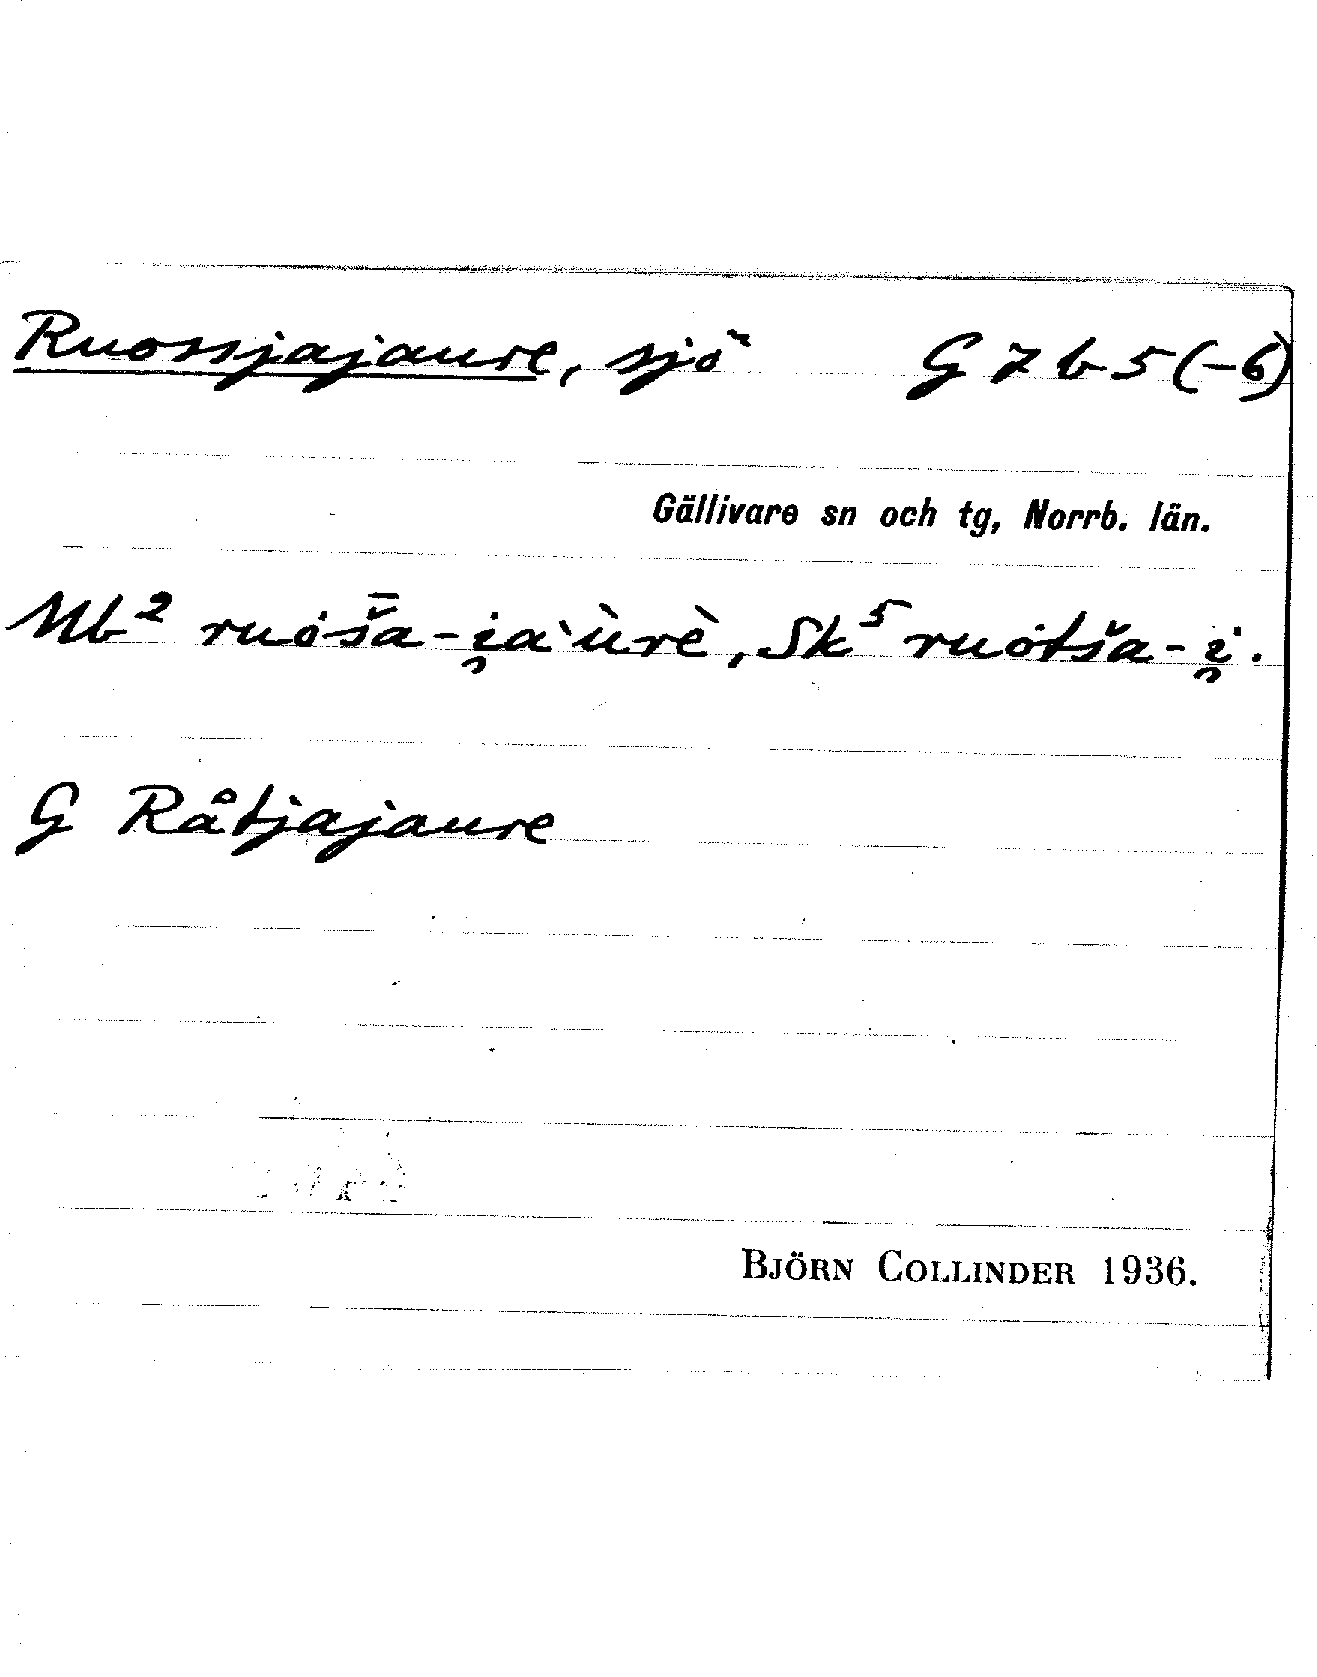 Ruossjajaure, sjö G 7 b 5 (-6)
Gällivare sn och tg, Norrb. län.
Mb² ruȯš̄a-i̯a`ùrè, Sk⁵ ruȯtša-i̯.
G Råtjajaure
BJÖRN COLLINDER 1936.